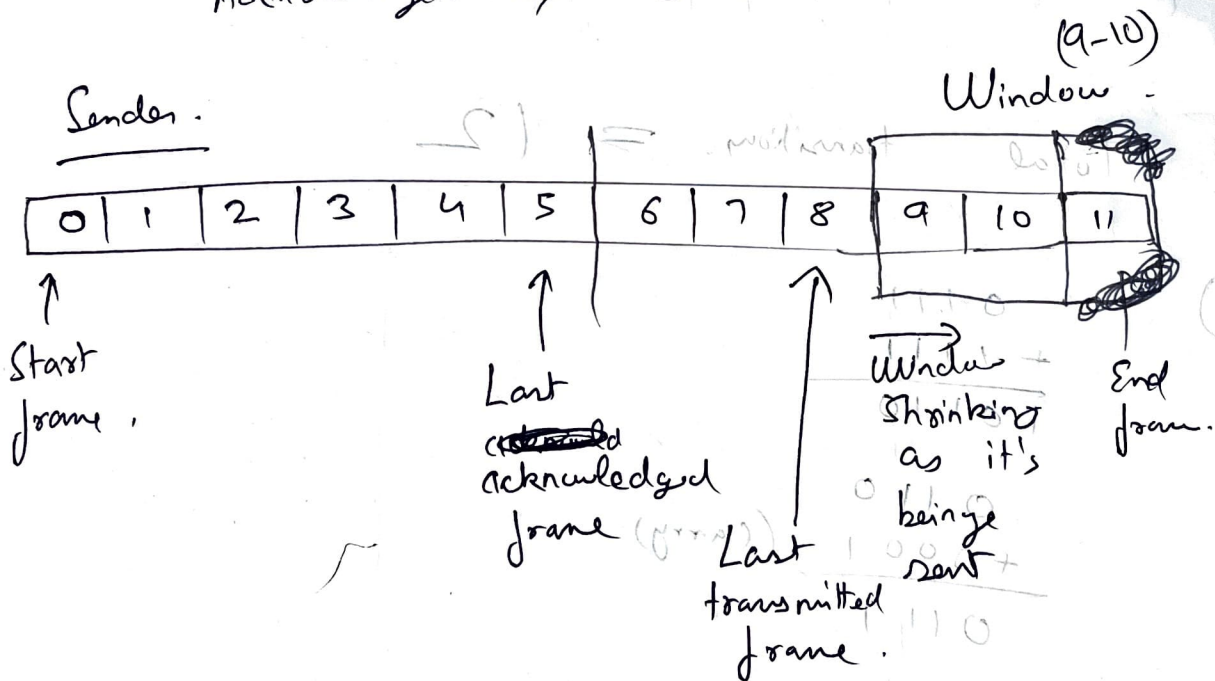 (9-10)
Window.
Sender.
0 1 2 3 4 5 6 7 8 9 10 11
Start
frame.
Last
acknowledged
frame
Last
transmitted
frame.
shrinking
as it's
being
sent
End
fram.